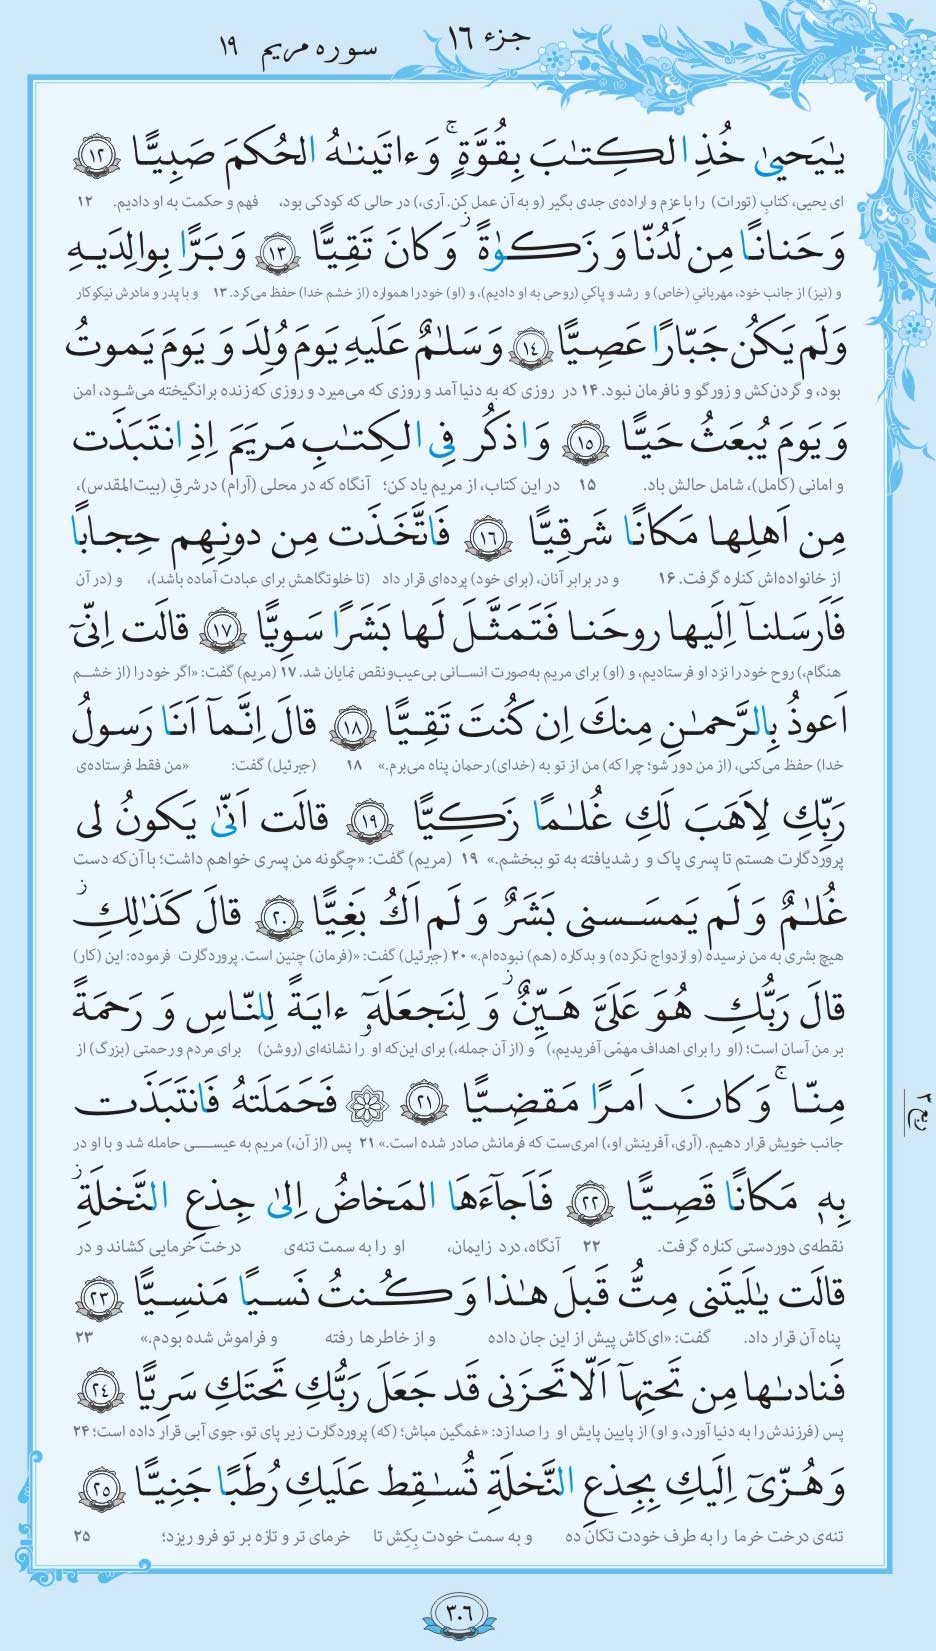 جزء ۱۶
سوره مریم ۱۹
يٰيَحيىٰ خُذِ الكِتٰبَ بِقُوَّةٍ ۚ وَءاتَينٰهُ الحُكمَ صَبِيًّا ﴿۱۲﴾
ای یحیی، کتابِ (تورات) را با عزم و اراده‌ی جدی بگیر (و به آن عمل کن. آری،) در حالی که کودکی بود، فهم و حکمت به او دادیم. ۱۲
وَ حَنانًا مِن لَدُنّا وَ زَكوٰةً ۖ وَ كانَ تَقِيًّا ﴿۱۳﴾ وَ بَرًّا بِوالِدَيهِ
و (نیز) از جانب خود، مهربانیِ (خاص) و رشد و پاکیِ (روحی به او دادیم)، و (او) خود را همواره (از خشم خدا) حفظ می‌کرد. ۱۳ و با پدر و مادرش نیکوکار
وَلَم يَكُن جَبّارًا عَصِيًّا ﴿۱۴﴾ وَ سَلٰمٌ عَلَيهِ يَومَ وُلِدَ وَ يَومَ يَموتُ
بود، و گردن‌کش و زورگو و نافرمان نبود. ۱۴ در روزی که به دنیا آمد و روزی که می‌میرد و روزی که زنده برانگیخته می‌شود، امن
وَ يَومَ يُبعَثُ حَيًّا ﴿۱۵﴾ وَ اذكُر فِى الكِتٰبِ مَريَمَ اِذِ انتَبَذَت
و امانی (کامل)، شامل حالش باد. ۱۵ در این کتاب، از مریم یاد کن؛ آنگاه که در محلی (آرام) در شرقِ (بیت‌المقدس)،
مِن اَهلِها مَكانًا شَرقِيًّا ﴿۱۶﴾ فَاتَّخَذَت مِن دونِهِم حِجابًا
از خانواده‌اش کناره گرفت. ۱۶ و در برابر آنان، (برای خود) پرده‌ای قرار داد (تا خلوتگاهش برای عبادت آماده باشد)، و (در آن
فَاَرسَلنآ اِلَيها روحَنا فَتَمَثَّلَ لَها بَشَرًا سَوِيًّا ﴿۱۷﴾ قالَت اِنّىٓ
هنگام،) روح خود را نزد او فرستادیم، و (او) برای مریم به‌صورت انسانی بی‌عیب‌ونقص نمایان شد. ۱۷ (مریم) گفت: «اگر خود را (از خشم
اَعوذُ بِالرَّحمٰنِ مِنكَ اِن كُنتَ تَقِيًّا ﴿۱۸﴾ قالَ اِنَّمآ اَنَا رَسولُ
خدا) حفظ می‌کنی، (از من دور شو؛ چرا که) من از تو به (خدای) رحمان پناه می‌برم.» ۱۸ (جبرئیل) گفت: «من فقط فرستاده‌ی
رَبِّكِ لِاَهَبَ لَكِ غُلٰمًا زَكِيًّا ﴿۱۹﴾ قالَت اَنّىٰ يَكونُ لى
پروردگارت هستم تا پسری پاک و رشدیافته به تو ببخشم.» ۱۹ (مریم) گفت: «چگونه من پسری خواهم داشت؛ با آن‌که دست
غُلٰمٌ وَ لَم يَمسَسنى بَشَرٌ وَ لَم اَكُ بَغِيًّا ﴿۲۰﴾ قالَ كَذٰلِكِ ۖ
هیچ بشری به من نرسیده (و ازدواج نکرده) و بدکاره (هم) نبوده‌ام.» ۲۰ (جبرئیل) گفت: «(فرمان) چنین است. پروردگارت فرموده: این (کار)
قالَ رَبُّكِ هُوَ عَلَىَّ هَيِّنٌ ۖ وَ لِنَجعَلَهٗٓ ءايَةً لِلنّاسِ وَ رَحمَةً
بر من آسان است؛ (او را برای اهداف مهمّی آفریدیم،) و (از آن جمله،) برای این‌که او را نشانه‌ای (روشن) برای مردم و رحمتی (بزرگ) از
مِنّا ۚ وَ كانَ اَمرًا مَقضِيًّا ﴿۲۱﴾ ۞ فَحَمَلَتهُ فَانتَبَذَت
جانب خویش قرار دهیم. (آری، آفرینش او،) امری‌ست که فرمانش صادر شده است.» ۲۱ پس (از آن،) مریم به عیسی حامله شد و با او در
بِهٖ مَكانًا قَصِيًّا ﴿۲۲﴾ فَاَجآءَهَا المَخاضُ اِلىٰ جِذعِ النَّخلَةِ ۖ
نقطه‌ی دوردستی کناره گرفت. ۲۲ آنگاه، درد زایمان، او را به سمت تنه‌ی درخت خرمایی کشاند و در
قالَت يٰلَيتَنى مِتُّ قَبلَ هٰذا وَ كُنتُ نَسيًا مَنسِيًّا ﴿۲۳﴾
پناه آن قرار داد. گفت: «ای‌کاش پیش از این جان داده و از خاطرها رفته و فراموش شده بودم.» ۲۳
فَنادىٰها مِن تَحتِهآ اَلّا تَحزَنى قَد جَعَلَ رَبُّكِ تَحتَكِ سَرِيًّا ﴿۲۴﴾
پس (فرزندش را به دنیا آورد، و او) از پایین پایش او را صدا زد: «غمگین مباش؛ (که) پروردگارت زیر پای تو، جوی آبی قرار داده است؛ ۲۴
وَ هُزّىٓ اِلَيكِ بِجِذعِ النَّخلَةِ تُسٰقِط عَلَيكِ رُطَبًا جَنِيًّا ﴿۲۵﴾
تنه‌ی درخت خرما را به طرف خودت تکان ده و به سمت خودت بِکِش تا خرمای تر و تازه بر تو فرو ریزد؛ ۲۵
ربع ۲
۳۰۶